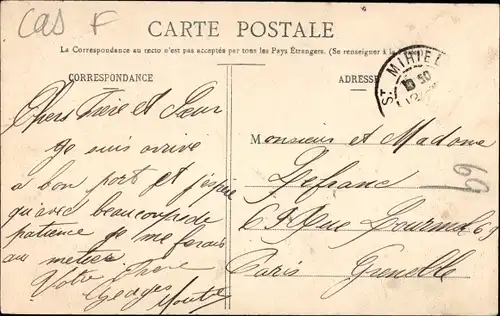 cas F
CARTE POSTALE
La Correspondance au recto n'est pas acceptée par tous les Pays Étrangers. (Se renseigner à la
CORRESPONDANCE
ADRESSE
ST MIHIEL
Chers Frère et Sœur
Je suis arrivé
a bon port et j'espère
qu'avec beaucoup de
patience je me ferais
au metier
Votre frère
Georges
Monsieur et Madame
Lefranc
69
Rue
Paris Grenelle